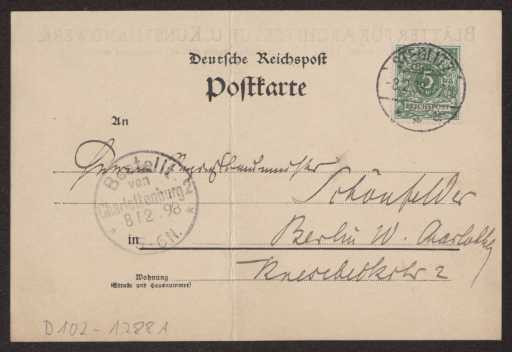 BLÄTTER FÜR ARCHITEKTUR U. KUNSTHANDWERK
Deutsche Reichspost
Postkarte
STEGLITZ
5
REICHSPOST
An
Herrn Regierungsbaumeister
Schönfelder
Bestellt
von
Charlottenburg 2
8 12. 98
N.
in Berlin W. Charlottbg
Knesebeckstr 2
Wohnung
(Straße und Hausnummer)
D102-12881